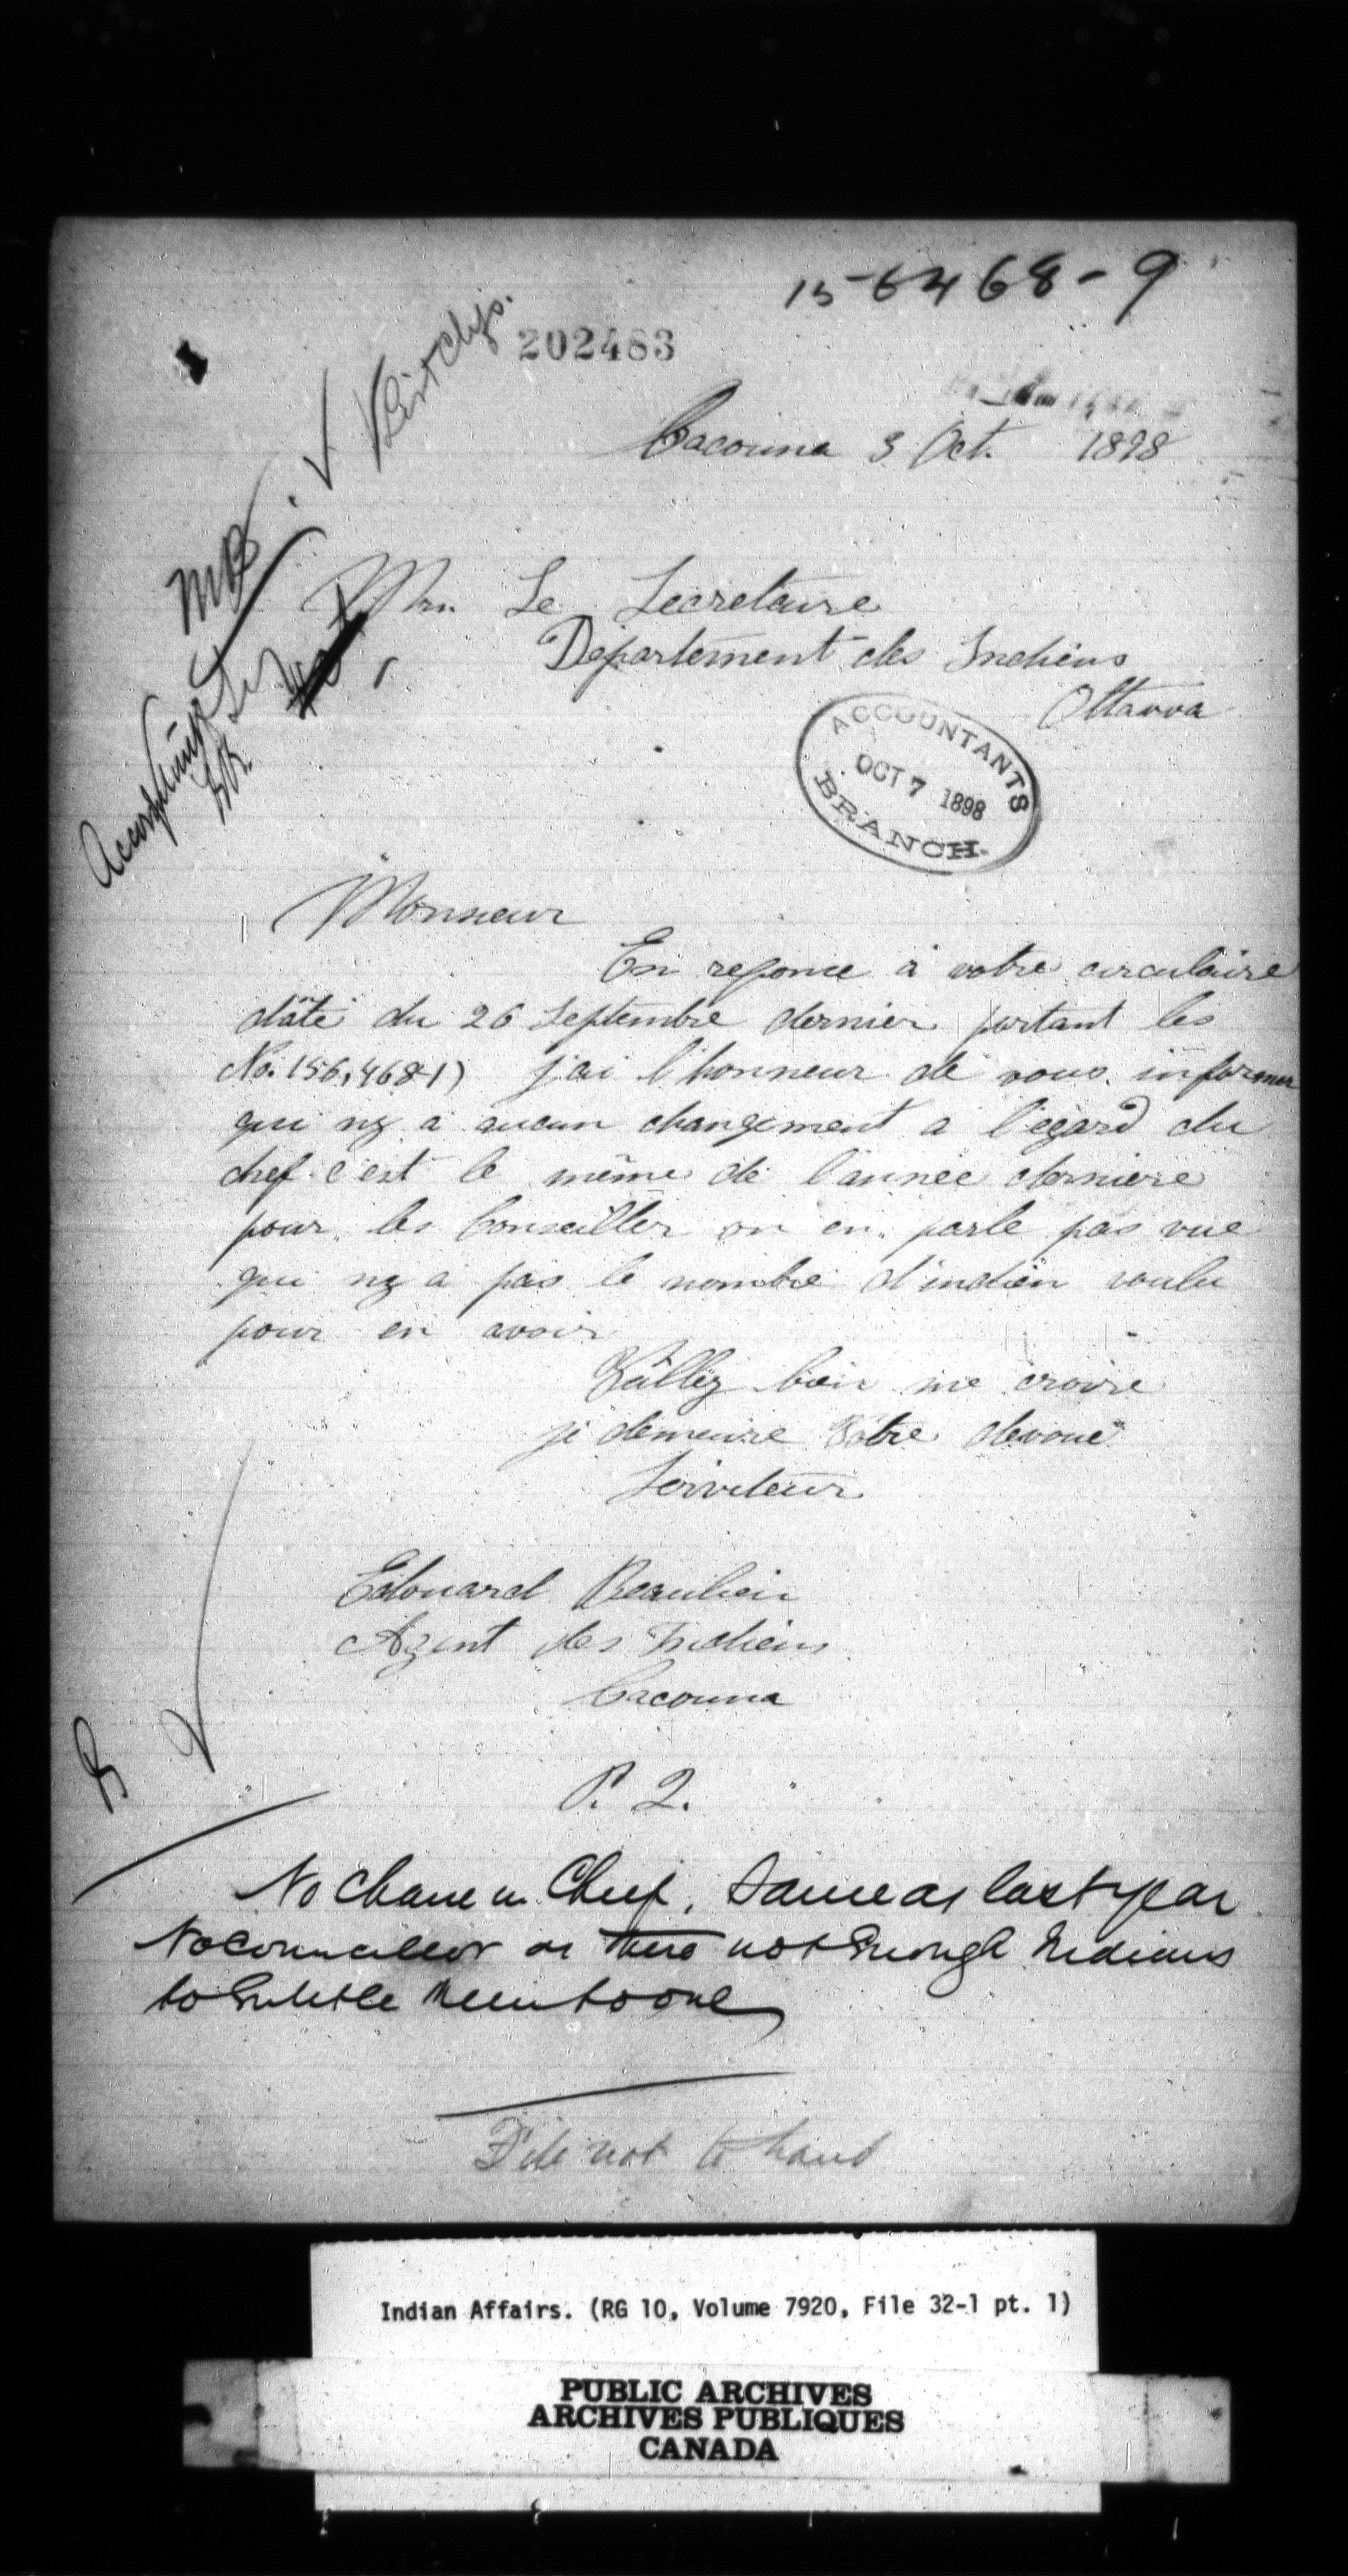 156468-9
202483
Cacouna 3 Oct. 1898
Mr. Le Secretaire
Département des Indiens
Ottawa
ACCOUNTANTS
OCT 7 1898
BRANCH.
MB
Monsieur
En reponce à votre circulaire
dâté du 26 Septembre dernier portant les
No. 156,468-1) j'ai l'honneur de vous informer
qui ny a aucun changement a l'égard du
chef c'est le même de l'année derniere
pour les Conseiller on en parle pas vue
qui ny a pas le nombre d'indien voulu
pour en avoir
Vëillez bien me croire
je demeure Votre devoué
Serviteur
Edouard Beaulieu
Agent des Indiens
Cacouna
P. Q.
No Chane in Chief. Same as last year
No councillor as there not Enough Indians
to Entitle them to one
File not to hand
Indian Affairs. (RG 10, Volume 7920, File 32-1 pt. 1)
PUBLIC ARCHIVES
ARCHIVES PUBLIQUES
CANADA